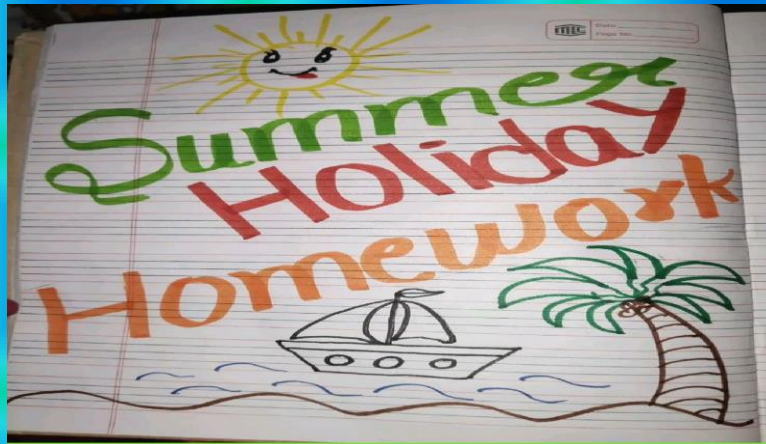 Date
Page No.
Summer
Holiday
Homework